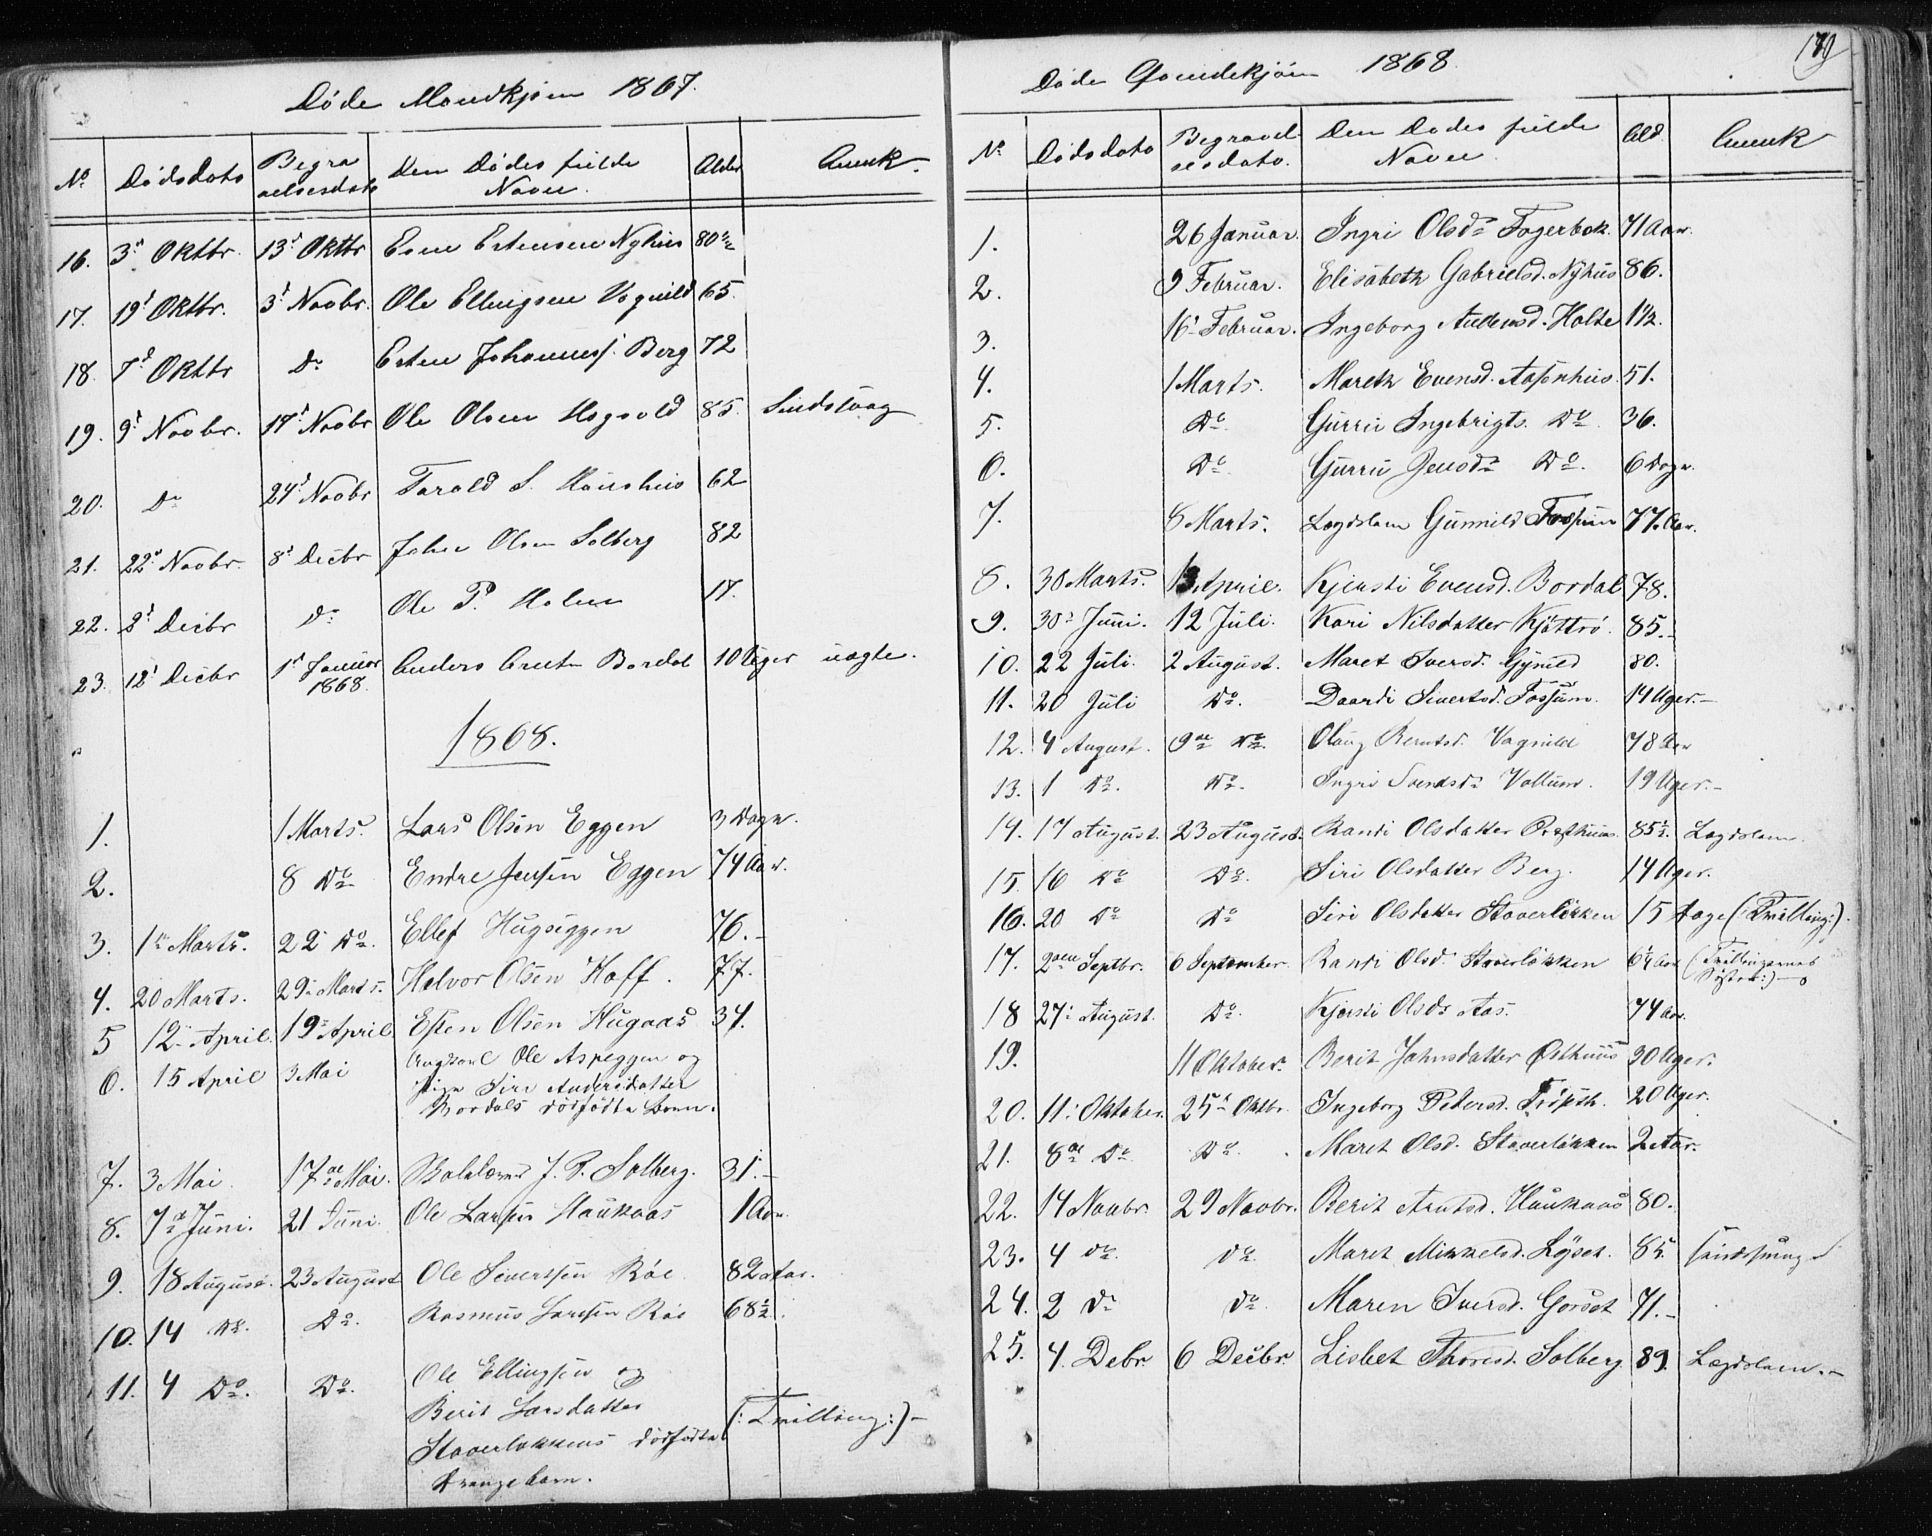 Døde Mandkjøn 1867.
No Dødsdato Begravelsesdato Den Dødes fulde Navn. Alder Anmk.
16. 3d Oktbr. 13d Oktbr Esten Estensen Nyhus 80
17. 19d Oktbr. 3d Novbr. Ole Ellingsen Vognild 65.
18. 7d Oktbr Do Esten Johanness. Berg 72
19. 9d Novbr. 17d Novbr Ole Olsen Hogsvold 85.
20. Do 24d Novbr Tarald S. 62
21. 22d Novbr. 8d Decbr John Olsen Solberg 82
22. 2d Decbr Do Ole P. Holen 17.
23. 12d Decbr 1d Januar 1868. Anders Arntsen Bordal 10 Uger uægte.
1868.
1. 1 Marts. Lars Olsen Eggen 3 Døgn.
2. 8 Do Endre Jensen Eggen 74 Aar.
3. 1ste Marts. 22 Do. Ellef Hugsiggen 76.-
4. 20 Marts. 29. Marts. Halvor Olsen Hoff. 77.
5 12. April. 19. April. Esten Olsen Hugaas 34.
6. 15 April 3 Mai Ungkarl Ole Aspeggen og
Pige Siri Andersdatter
Bordals dødfødte Barn.
7. 3 Mai. 17de Mai. J. P. Solberg. 31.-
8. 7de Juni. 21 Juni. Ole Larsen Haukaas 1 Aar.
9. 18 August. 23 August Ole Sivertsen Röe. 82 Aar.
10. 14 Do. Do. Rasmus Larsen Röe 68½.
11. 4 Do. Do. Ole Ellingsen og
Berit Larsdatter
Staverløkkens dødfødte (: Tvilling:)-
Drengebarn.
Døde Qvindekjøn 1868. 179
No Dødsdato Begravelsesdato. Den Dødes fulde Navn. Ald. Anmk
1. 26 Januar. Ingri Olsdr Fagerbek. 71 Aar.
2. 9 Februar. Elisabeth Gabrielsd. Nyhus 86.
3. 16. Februar. Ingeborg Andersd. Holte 1½.
4. 1 Marts. Mareth Evensd. Aspnhus. 51.
5. Do. Gurrie Ingebrigts. Do. 36.
6. Do. Gurru Jensdr Do. 6 Døgn.
7. 8 Marts. Lægdslem Gunnild Fossum 77. Aar.
8. 30 Marts. 13 April. Kjersti Evensd. Bordal 78.
9. 30. Juni. 12 Juli. Kari Nilsdatter Kjöttrö. 85.-
10. 22 Juli. 2 August. Maret Iversd. Gynild 80.
11. 20 Juli Do. Daardi Sivertsd. Fossum. 14 Uger.-
12. 4 August. 9de Do. Olaug Berntsd. Vognild 78 Aar
13. 1 Do. Do. Ingri Svendsdr Vollum. 19 Uger.-
14. 17 August. 23 August. Randi Olsdatter Præsthuus. 85½. Lægdslem.
15. 16 Do Do. Siri Olsdatter Berg. 14 Uger.
16. 20 Do Do Siri Olsdatter Staverløkken 15 Dage (Tvilling:).
17. 2den Septbr. 6 September. Randi Olsd. Staverløkken 6¼ Aar (Tvillingernes
Søster:)-
18 27. August. Do. Kjersti Olsdr Aas. 74 Aar.
19. 11 Oktober. Berit Johnsdatter Östhuus 30 Uger.
20. 11. Oktober. 25. Oktbr. Ingeborg Pedersd. 20 Uger.
21. 8de Do. Do. Maret Olsd. Staverløkken 2 Aar.
22. 14 Novbr. 29 Novbr. Berit Arntsd. Haukaas 80.
23. 4 do. do. Maret Mikkelsd. Løset. 85.
24. 2 Do do. Maren Iversd. Gorset 71.-
25. 4. Debr. 6 Decbr. Lisbet Thoresd. Solberg 89. Lægdslem.-